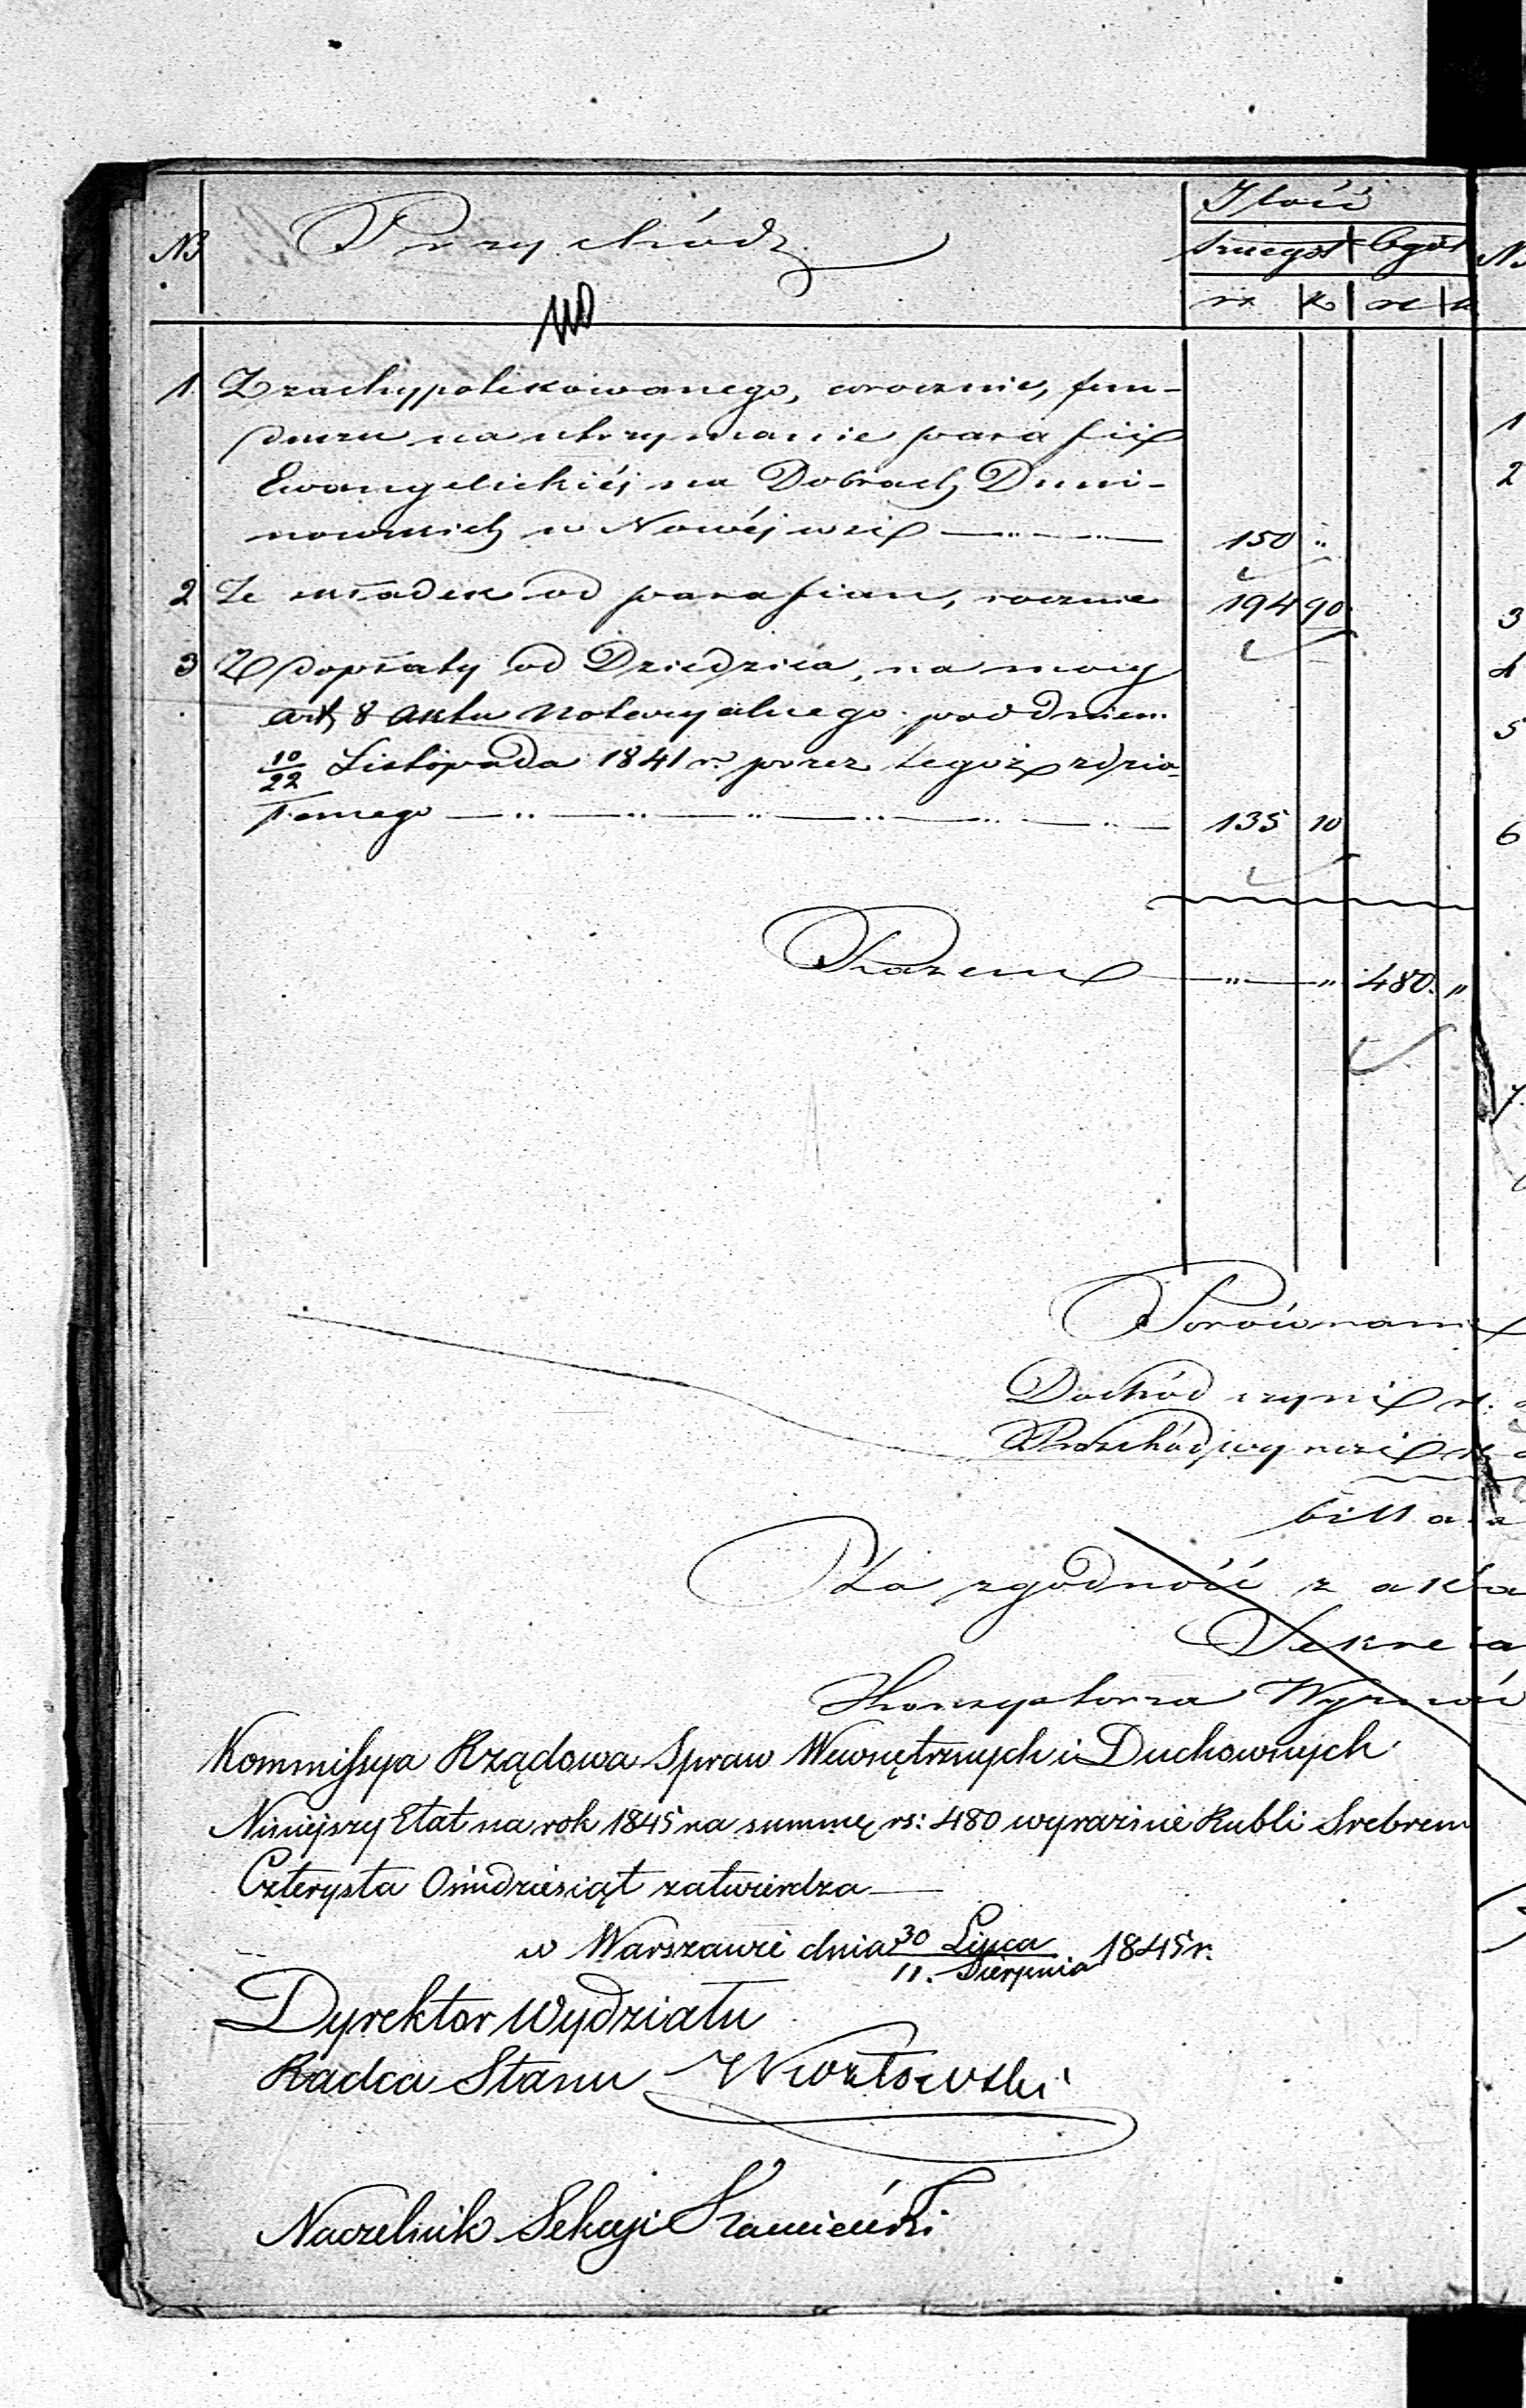 Ilość
N3 Przychód szczegół Ogół
rs k rs k
1. Z zachypotekowanego, corocznie, fun-
duszu na utrzymanie parafii
Ewangelickiéj na Dobrach Duni-
nowskich w Nowéj wsi 150 "
2 Ze składek od parafian, rocznie 194 90
3 Z dopłaty od Dziedzica, na mocy
art 8 Aktu Notaryalnego pod dniem
10/22 Listopada 1841 r. przez tegoż zdzia-
łanego 135 10
Razem " " 480. "
Porównanie
Dochód czyni rs:
Rozchód wynosi rs
Za zgodność z akta
Sekreta
Konsystorza Wyzn
Kommissya Rządowa Spraw Wewnętrznych i Duchownych
Niniejszy Etat na rok 1845 na summę rs: 480 wyraźnie Rubli Srebrem
Czterysta Ośmdziesiąt zatwierdza
w Warszawie dnia 30 Lipca / 11. Sierpnia 1845 r.
Dyrektor Wydziału
Radca Stanu
Naczelnik Sekcyi Kamieński